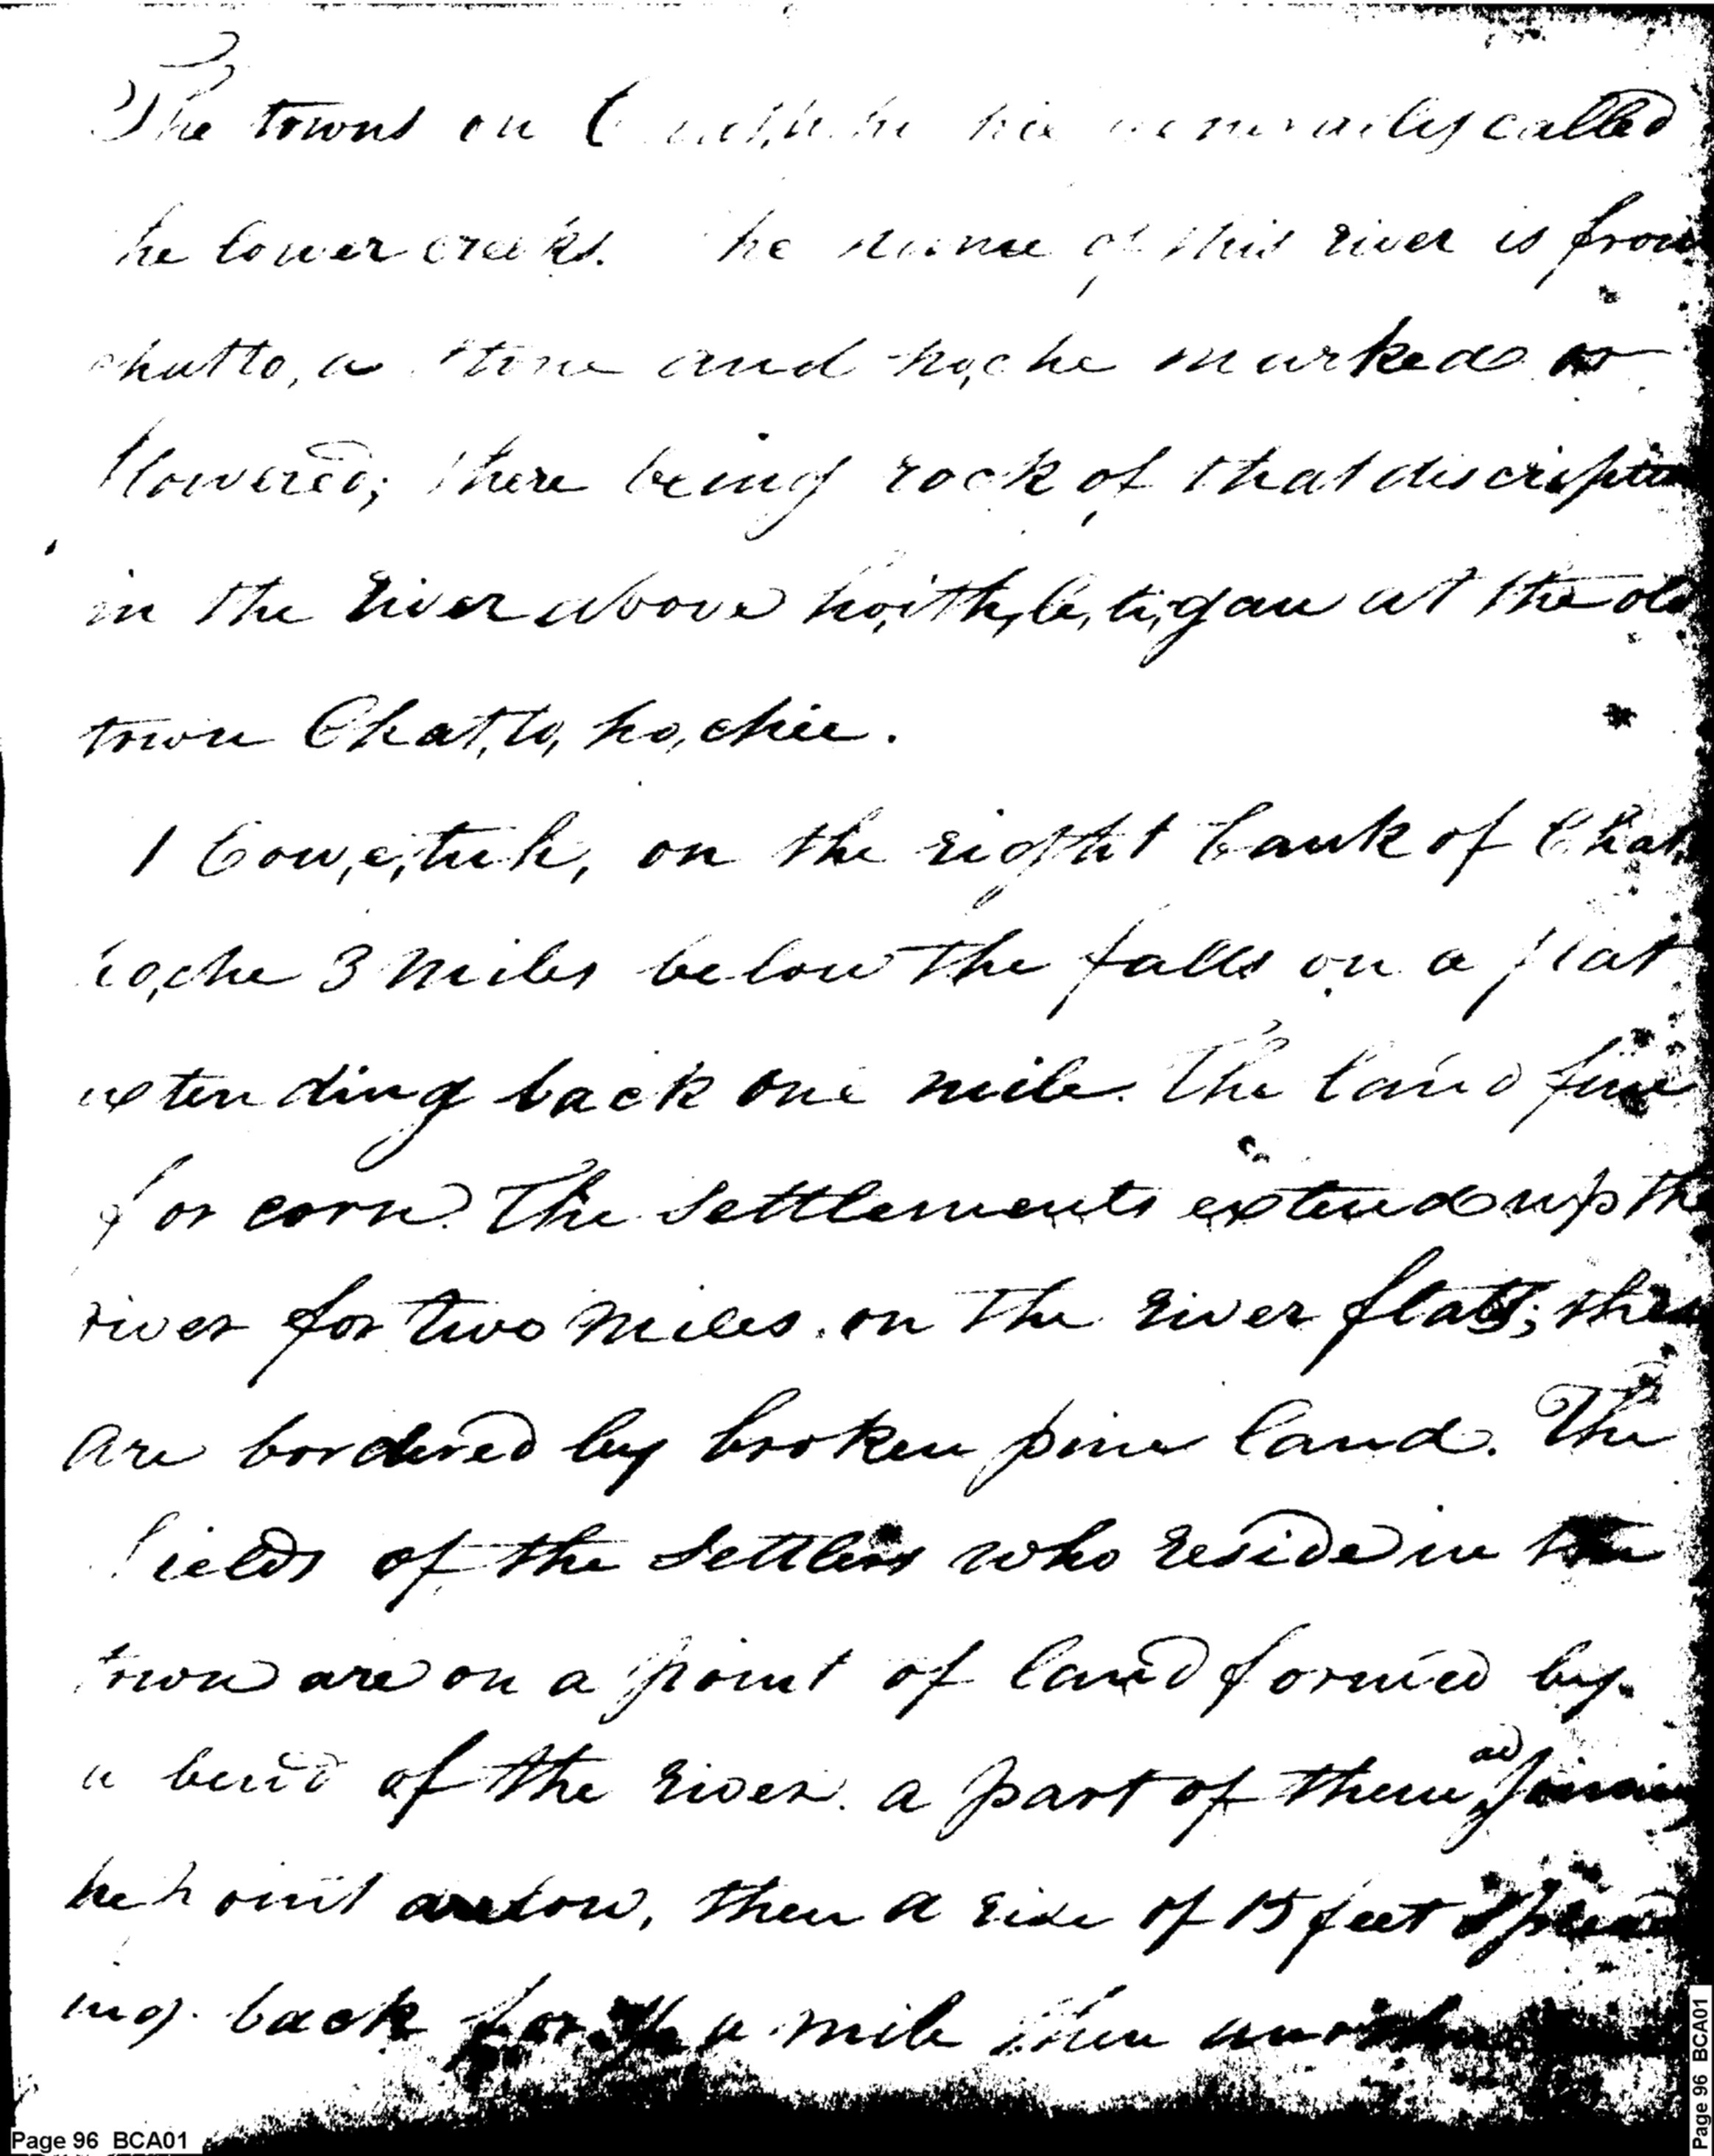 The towns on generally called
he lower creeks. he name of this river is from
chatto, a stone and ho,che marked or
flowered; there being rock of that discription
in the river above ho,ith,le,ti,gau at the old
town Chat,to, ho, chee.
1 Cow,e,tuh, on the right bank of Chat,
ho,che 3 miles below the falls on a flat
extending back one mile. The land fine
for corn. The settlements extend up the
river for two miles on the river flats; these
are bordered by broken pine land. The
fields of the settlers who reside in the
town are on a point of land formed by
a bend of the river. a part of them adjoining
he point are low, then a rise of 15 feet spread
ing back for a mile then another
Page 96 BCA01
Page 96 BCA01